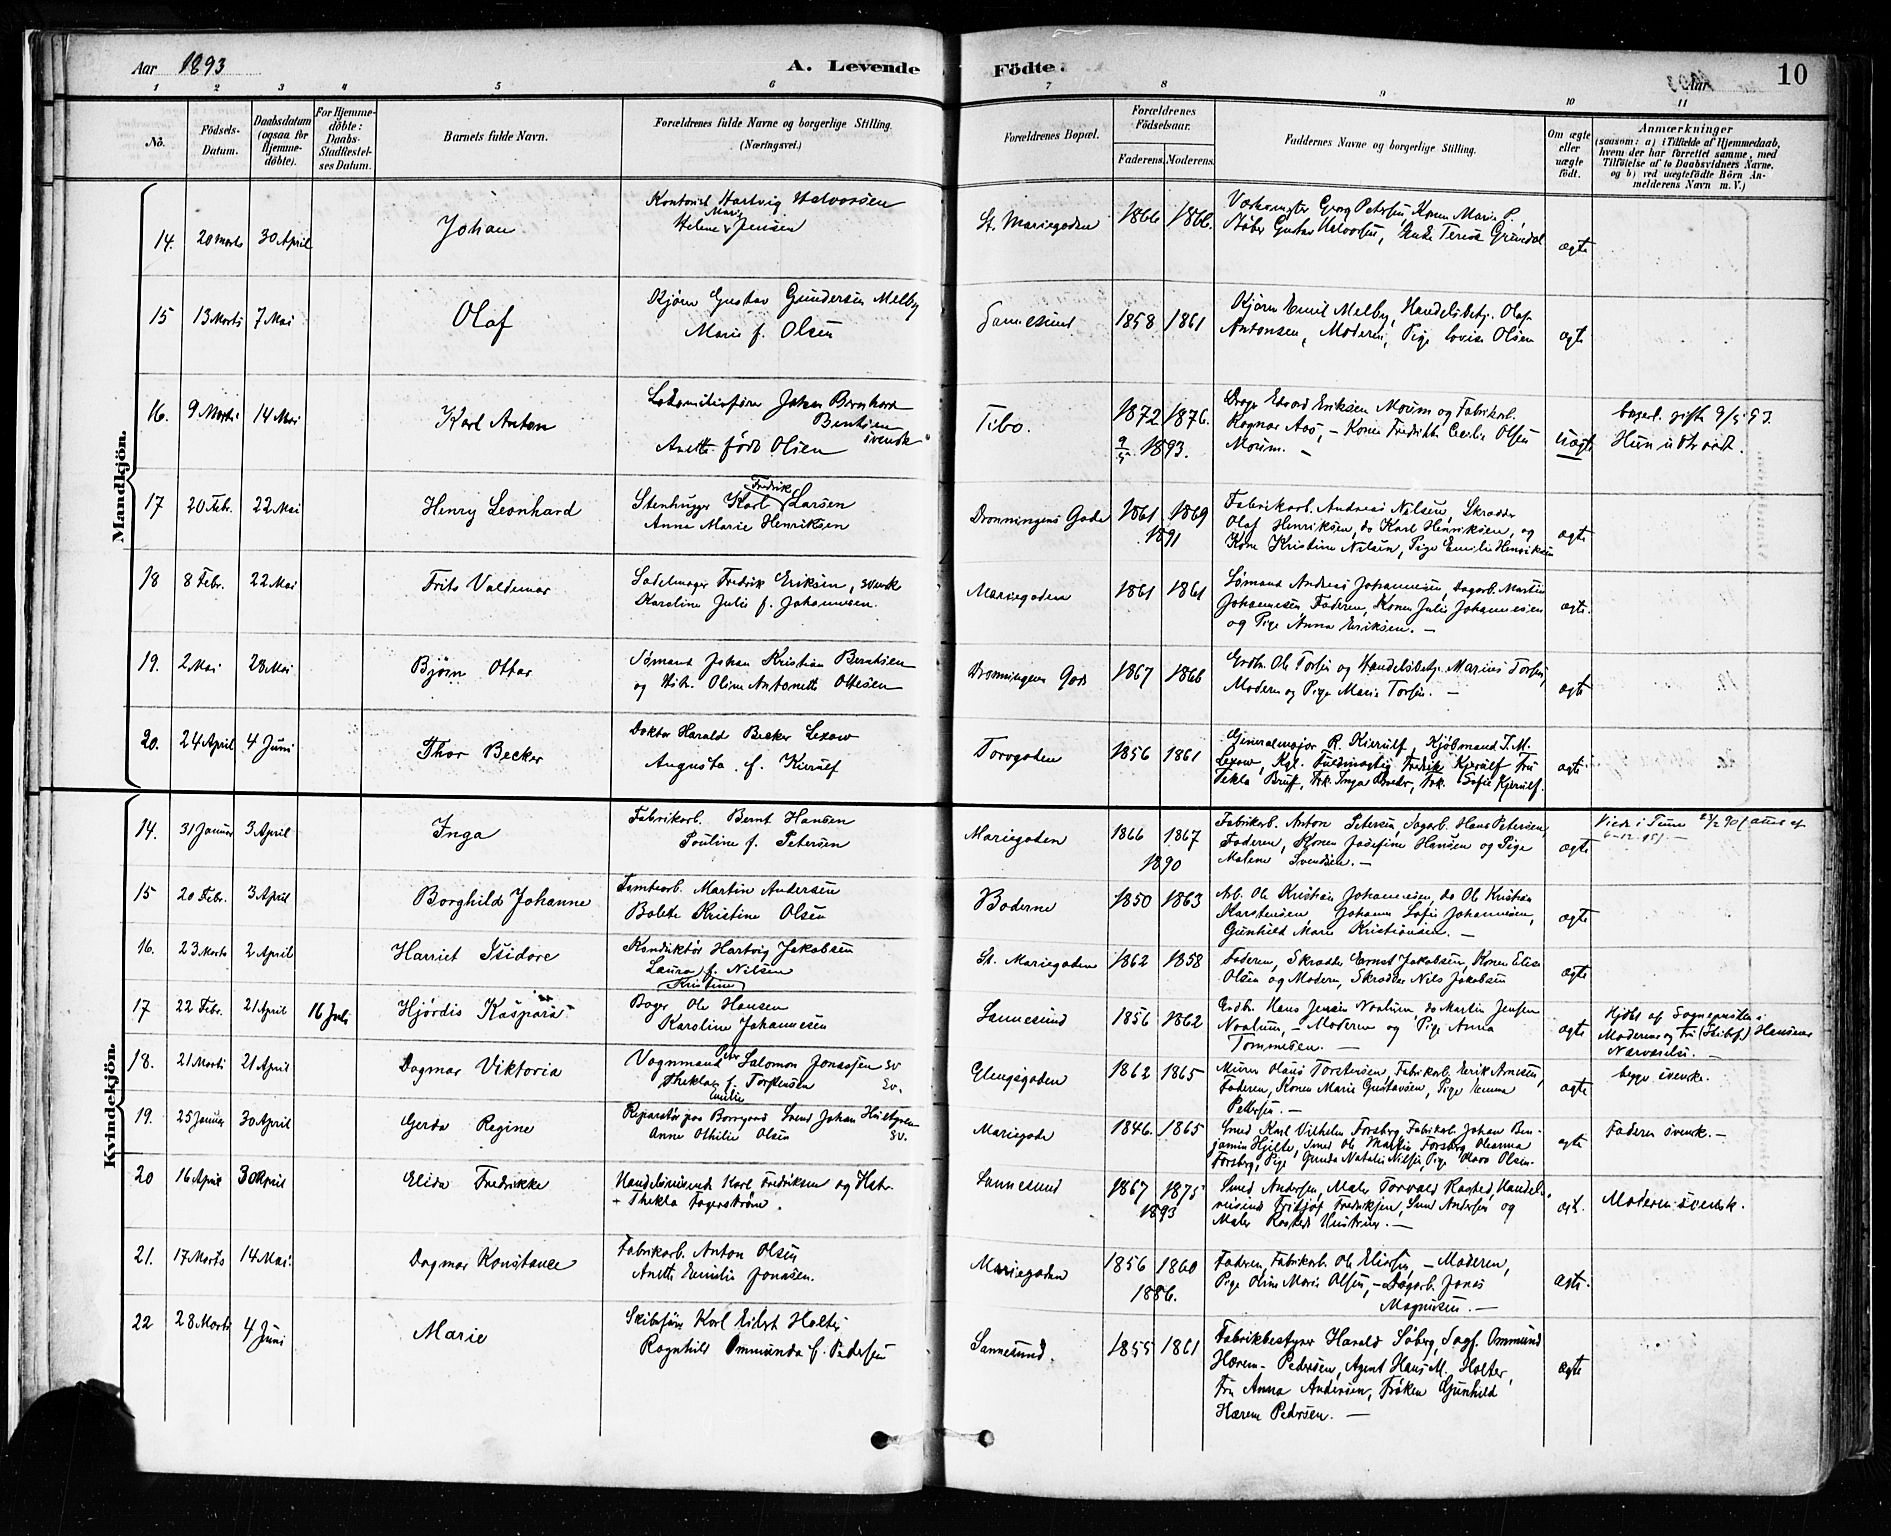 Aar 1893
A. Levende Födte.
Aar
10
1 2 3 4 5 6 7 8 9 10 11
No.
Födsels-Datum.
Daabsdatum (ogsaa for Hjemmedöbte).
For Hjemmedöbte: Daabs-Stadfæstelses Datum.
Barnets fulde Navn.
Forældrenes fulde Navne og borgerlige Stilling. (Næringsvei.)
Forældrenes Bopæl.
Forældrenes Födselsaar.
Faderens. Moderens.
Faddernes Navne og borgerlige Stilling.
Om ægte eller uægte födt.
Anmærkninger
(saasom: a) i Tilfælde af Hjemmedaab, hvem der har forrettet samme, med Tilföielse af to Daabsvidners Navne. og b) ved uægtefödte Börn Anmelderens Navn m. V.)
Mandkjön.
14. 20 Marts 30 April Johan
Kontorist Hartvig Halvorsen
Helene Marie Jensen
St. Mariegaden 1866 1866.
Georg Petersen, Konen Marie P.
Støber Gustav Halvorsen, Enke Terese Grindal
ægte
15 13 Marts 7 Mai Olaf
Kjører Gustav Gundersen Melby
Marie f. Olsen
Sannesund 1858 1861
Kjører Emil Melby, Handelsbetj. Olaf
Antonsen, Moderen, Pige Lovise Olsen
ægte
16. 9 Marts 14 Mai Karl Anton
Lokomotivfører Johan Bernhard
Berntsen svensk
Anette født Olsen
Tibo. 1872 1876.
9/5 1893.
Edvard Eriksen Moum og Fabrikarb.
Ragnar Aas, - Konen Fredrikke Cecilie Olsen
Moum. -
uægte
borgerl. gift 9/5 93.
Hun udtraadt.
17 20 Febr. 22 Mai Henry Leonhard
Stenhugger Karl Fredrik Larsen
Anne Marie Henriksen
Dronningens Gade 1861 1869
1891
Fabrikarb. Andreas Nilsen, Skrædder
Olaf Henriksen, do Karl Henriksen, og
Kone Kristine Nilsen, Pige Emilie Henriksen
ægte
18 8 Febr. 22 Mai Frits Valdemar
Sadelmager Fredrik Eriksen, svensk
Karoline Julie f. Johannesen.
Mariegaden 1861 1861
Sømand Andreas Johannesen, Dagarb. Martin
Johannesen Faderen, Konen Julie Johannesen
og Pige Anna Eriksen. -
ægte.
19. 2 Mai 28 Mai Bjørn Ottar
Sømand Johan Kristian Berntsen
og Hstr. Oline Antonette Ottesen
Dronningens Gade 1867 1866
Ole Torsen og Handelsbetj. Marius Torsen,
Moderen og Pige Marie Torsen. -
ægte
20. 24 April 4 Juni Thor Becker
Doktor Harald Becker Lexow
Augusta f. Kierulf
Torvgaden 1856 1861
Generalmajor R. Kierulf, Kjøbmand T. M.
Lexow, Kgl. Fuldmægtig Fredrik Kjerulf Fru
Tekla Bruf, Frk. Inga, Frk. Sofie Kjerulf.
ægte
Kvindekjön.
14. 31 Januar 3 April Inga
Fabrikarb. Bernt Hansen
Pouline f. Petersen
Mariegaden 1866 1867
1890
Fabrikarb. Anton Petersen, Dagarb. Hans Petersen,
Faderen, Konen Josefine Hansen og Pige
Malene Svendsen. -
ægte
Viede i Tune
15 20 Febr. 3 April Borghild Johanne
Tomtearb. Martin Andersen
Bolette Kristine Olsen
Boderne 1850 1863
Arb. Ole Kristian Johannesen, do Ole Kristian
Karstensen, Johanne Sofie Johannesen,
Gunhild Marie Kristiansen. -
ægte
16. 23 Marts 2 April Harriet Isidore
Konduktør Hartvig Jakobsen
Laura Kristine f. Nilsen
St. Mariegaden 1862 1858
Faderen, Skrædder Ernst Jakobsen, Konen Elise
Olsen og Moderen, Skrædder Nils Jakobsen
ægte
17 22 Febr. 21 April 16 Juli Hjørdis Kaspara
Bager Ole Hansen
Karoline Johannesen
Sannesund 1856 1862
Hans Jensen Navlum, do Martin Jensen
Navlum, - Moderen og Pige Anna
Tommesen. -
ægte
Hjdbt af Sognepresten i
Moderens og Fru Hansens
Nærværelse. -
18. 21 Marts 21 April Dagmar Viktoria
Vognmand Peter Salomon Jonassen Sv
Thekla Emilie f. Torstensen Sv.
Glengsgaden 1862 1865
Murer Olaus Torstensen, Fabrikarb. Erik Arnesen,
Faderen, Konen Marie Gustavsen, Pige Emma
Petersen. -
ægte
begge svenske.
19. 25 Januar 30 April Gerda Regine
Reparatør paa Borregaard Svend Johan Hultgren
Anne Othilie Olsen Sv.
Mariegade 1846. 1865
Smed Karl Vilhelm Forsberg, Fabrikarb. Johan Ben-
jamin Hjelte, Smed Ole Martin Forsberg, Oleanna
Forsberg, Pige Gunda Natalie Nilsen, Pige Klara Olsen.
ægte
Faderen svensk. -
20 16 April 30 April Elida Fredrikke
Handelsreisende Karl Fredriksen og Hstr.
Thekla Fagerstrøm.
Sannesund 1867 1875
1893
Smed Andersen, Maler Torvald Rosted, Handels-
reisende Fritjof Fredriksen, Smed Andersens og
Maler Rosteds Hustruer. -
ægt.
Moderen svensk.
21. 17 Marts 14 Mai Dagmar Konstance
Fabrikarb. Anton Olsen
Anette Emilie Jonasen.
Mariegaden 1856 1860
1886.
Faderen, Fabrikarb. Ole Eliasen, - Moderen,
Pige Oline Marie Olsen, - Dagarb. Jonas
Magnusen. -
ægte.
22 28 Marts 4 Juni Marie
Skibsfører Karl Eilert Holter
Ragnhild Ommunda f. Pedersen
Sannesund. 1855 1861
Fabrikbestyrer Harald Søberg, Sagf. Ommund
Hærem-Pedersen, Agent Hans M. Holter,
Fru Anna Andersen, Frøken Gunhild
Hærem Pedersen. -
ægte